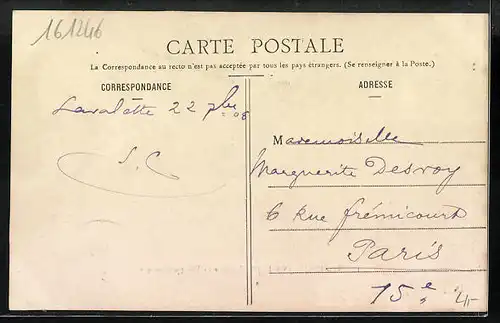 161246
CARTE POSTALE
La Correspondance au recto n'est pas acceptée par tous les pays étrangers. (Se renseigner à la Poste.)
CORRESPONDANCE
ADRESSE
Lavalette 22 7bre 08
S.C
Mademoiselle
Marguerite Desvoy
6 Rue frémicourt
Paris
15e
4,-